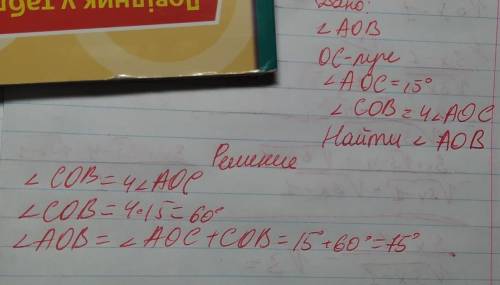 Довідник у таб
Дано:
∠AOB
OC-луч
∠AOC=15°
∠COB=4∠AOC
Найти ∠AOB
Решение
∠COB=4∠AOC
∠COB=4·15=60°
∠AOB=∠AOC+COB=15°+60°=75°